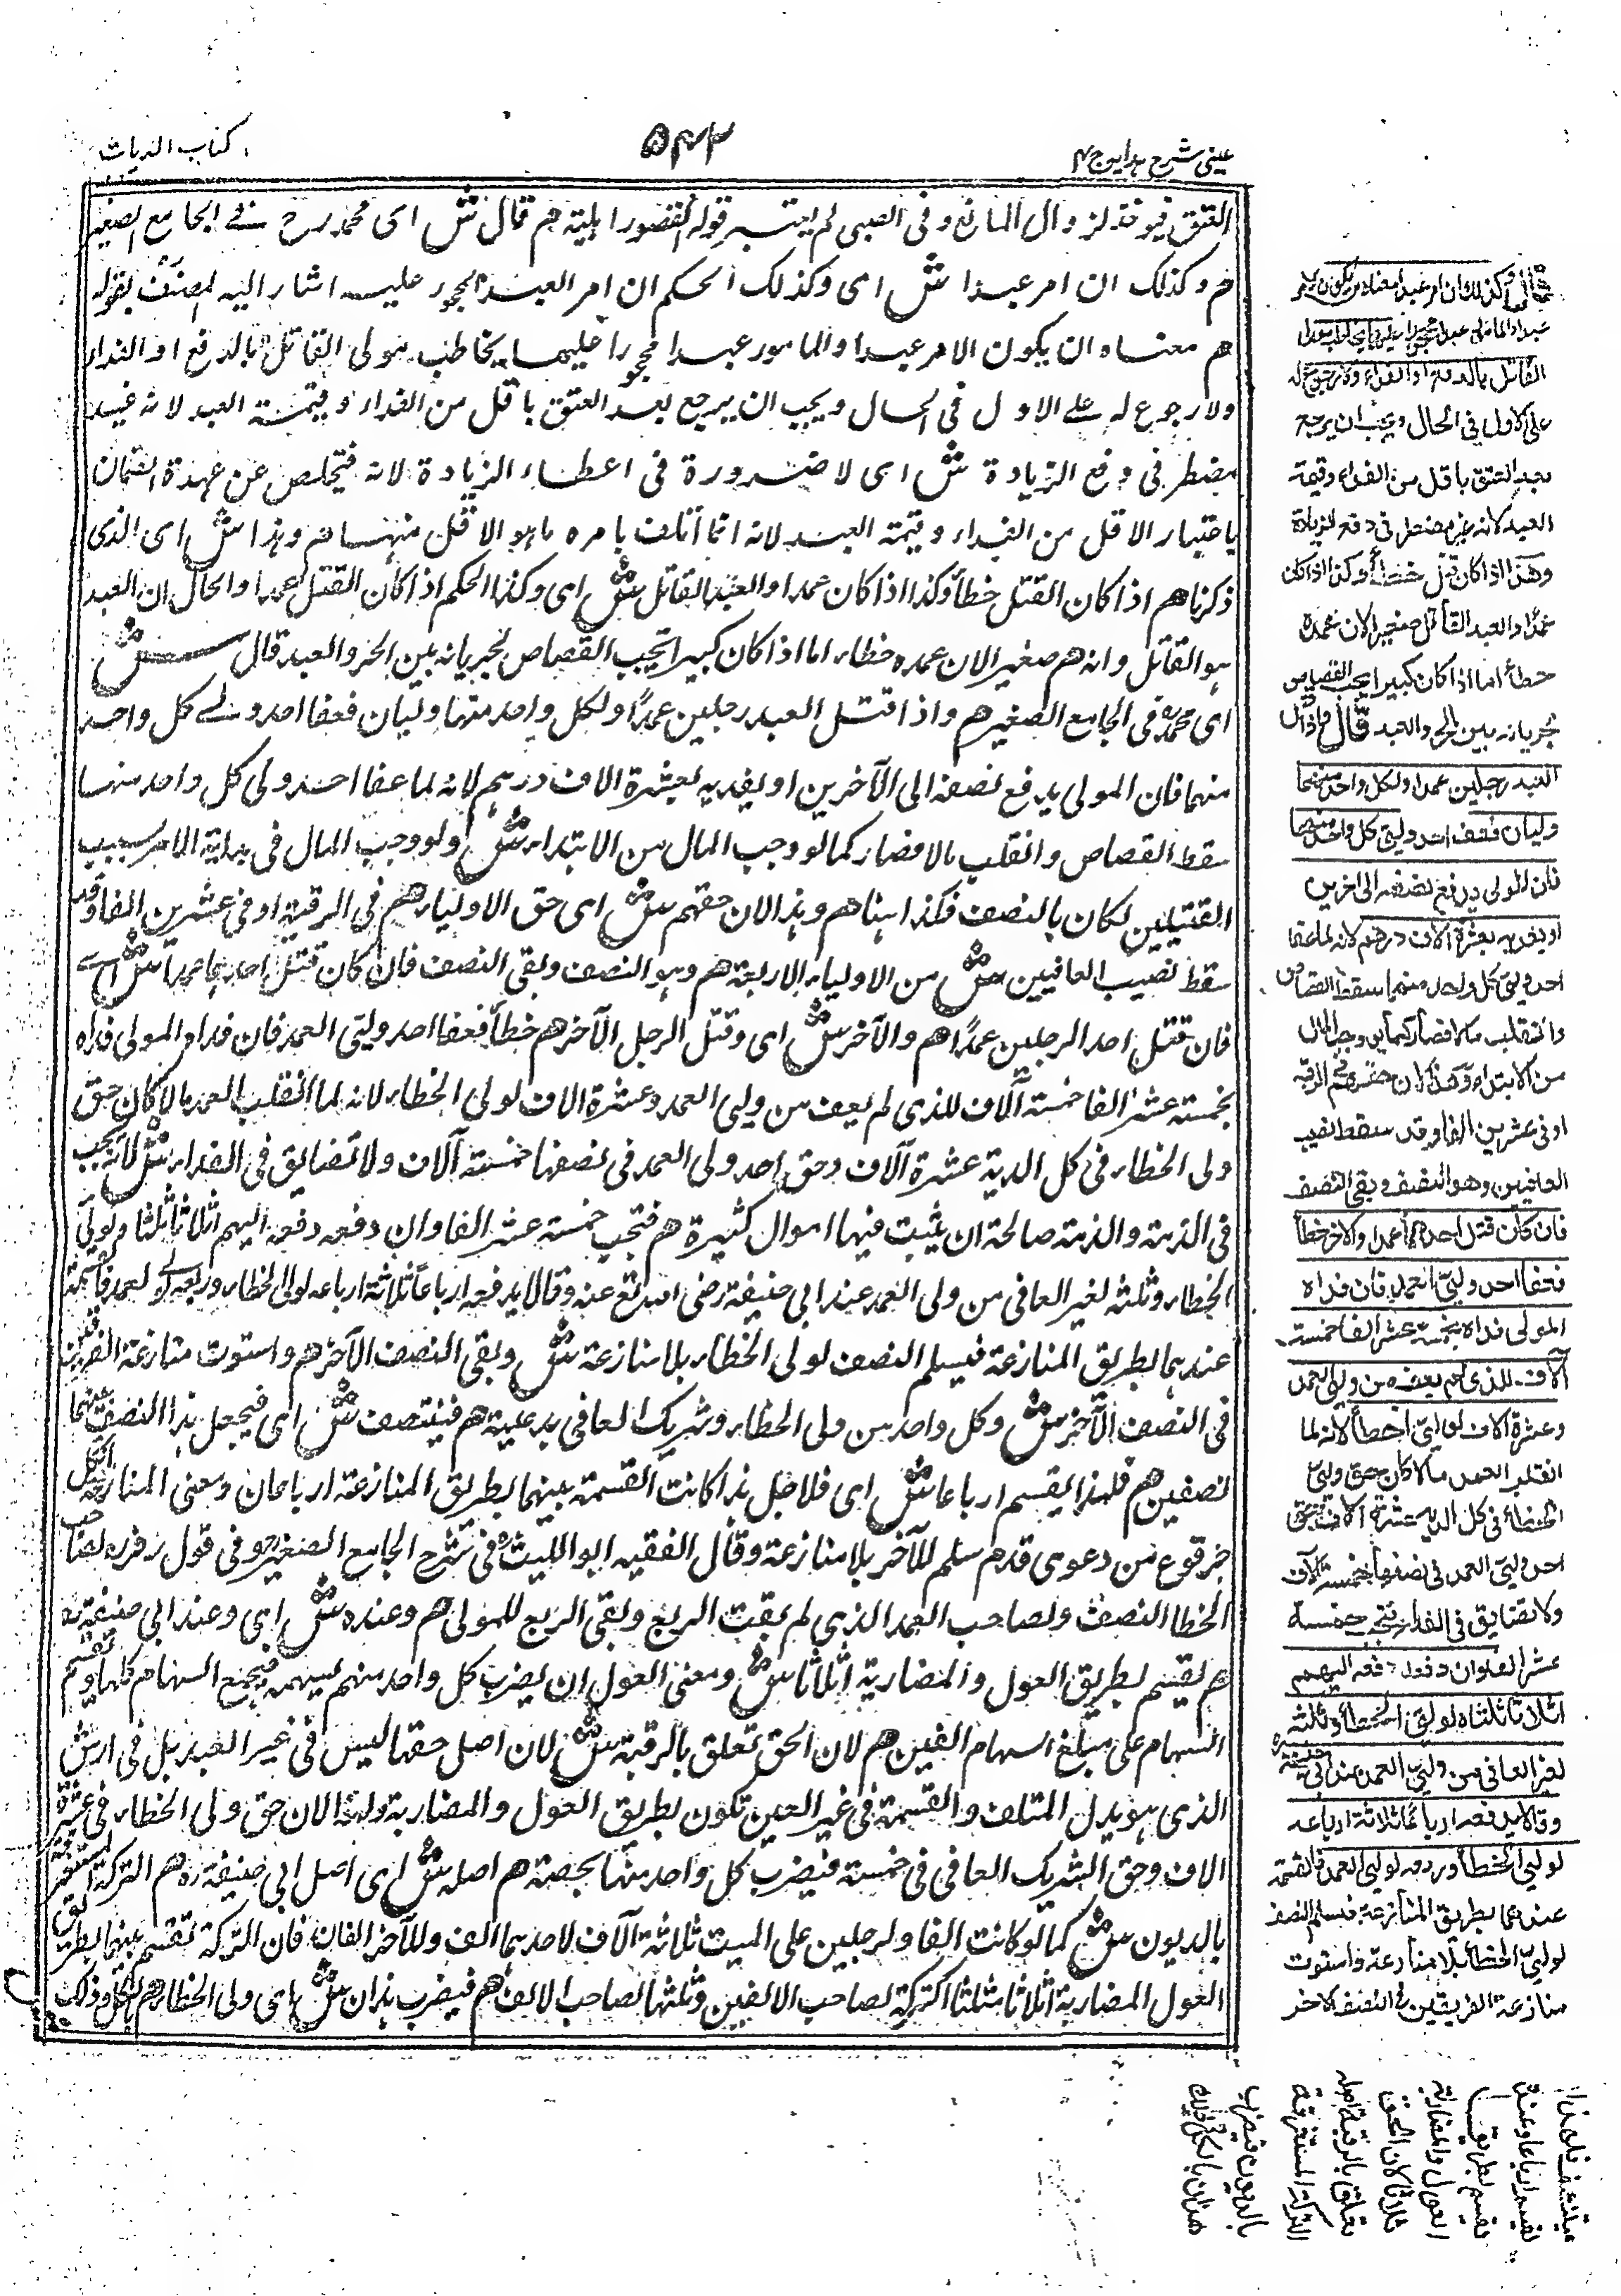 عینی شرح ہدایہ ج ۴
۵۴۳
کتاب الدیات
العتق فیوخذ لزوال المانع وفی الصبی لم یعتبر قولہ لقصور اہلیتہ ہم قال ش ای محمد رح فے الجامع الصغیر
ہم وکذلک ان امر عبدا ش ای وکذلک الحکم ان امر العبد المحجور علیہ اشار الیہ المصنف بقولہ
ہم معناہ ان یکون الامر عبدا والمامور عبدا محجورا علیہما یخاطب مولی القاتل بالدفع او الفداء
ولا رجوع لہ علے الاول فی الحال ویجب ان یرجع بعد العتق باقل من الفداء وقیمتہ العبد لانہ غیر
مضطر فی دفع الزیادۃ ش ای لا ضرورۃ فی اعطاء الزیادۃ لانہ فیتخلص عن عہدۃ الضمان
باختیار الاقل من الفداء وقیمتہ العبد لانہ انما اتلف بامرہ ماہو الاقل منہما ہم وہذا ش ای الذی
ذکرنا ہم اذا کان القتل خطأ وکذا اذا کان عمدا والعبد القاتل ش ای وکذا الحکم اذا کان القتل عمدا والحال ان العبد
ہو القاتل وانہ ہم صغیر الان عمدہ خطاء اما اذا کان کبیرا تجب القصاص لجریانہ بین الحر والعبد قال ش
ای محمد رہ فی الجامع الصغیر ہم واذا قتل العبد رجلین عمداً ولکل واحد منہما ولیان فعفا احد ولے کل واحد
منہما فان المولی یدفع نصفہ الی الآخرین او یفدیہ بعشرۃ الاف درہم لانہ لما عفا احد ولی کل واحد منہما
سقط القصاص وانقلب بالامضاء کما لو وجب المال من الابتداء ش ولو وجب المال فی بدایۃ الامر بسبب
القتیلین لکان بالنصف فکذا ہہنا ہم وہذا لان حقہم ش ای حق الاولیاء ہم فی الرقبۃ او فی عشرین الفا وقد
سقط نصیب العافیین ش من الاولیاء الاربعۃ ہم وہو النصف وبقی النصف فان کان قتل احدہما عمداً ش اے
فان قتل احد الرجلین عمداً ہم والآخر ش ای وقتل الرجل الآخر ہم خطأ فعفا احد ولیی العمد فان فداہ المولی فداہ
بخمستہ عشر الفا خمستہ آلاف للذی لم یعف من ولیی العمد وعشرۃ الاف لولی الخطاء لانہ لما انقلب العمد مالا کان حق
ولی الخطاء فی کل الدیۃ عشرۃ آلاف وحق احد ولی العمد فی نصفہا خمستہ آلاف ولا تضایق فی الفداء ش لانہ یجب
فی الذمۃ والذمۃ صالحۃ ان یثبت فیہا اموال کثیرۃ ہم فتجب خمستہ عشر الفا وان دفعہ دفعہ الیہم اثلاثا ثلثاہ لولیی
الخطاء وثلثہ لغیر العافی من ولی العمد عند ابی حنیفۃ رضی اللہ تع عنہ وقالا یدفعہ ارباعاً ثلاثۃ ارباعہ لولی الخطاء وربعہ لولی العمد فالقسمۃ
عندہما بطریق المنازعۃ فیسلم النصف لولی الخطاء بلا منازعۃ ش وبقی النصف الآخر ہم واستوت منازعۃ الفریقین
فی النصف الآخر ش وکل واحد من ولی الخطاء وشریک العافی یدعیہ ہم فینتصف ش ای فیجعل ہذا النصف بینہما
نصفین ہم فلہذا یقسم ارباعا ش ای فلاجل ہذا کانت القسمۃ بینہما بطریق المنازعۃ ارباعا ومعنی المنازعۃ ان کل
جزء وقع من دعوی قدہم سلم للآخر بلا منازعۃ وقال الفقیہ ابو اللیث رہ فی شرح الجامع الصغیر ہو فی قول زفر رہ لصاحب
الخطا النصف ولصاحب العمد الذی لم یعف الربع وبقی الربع للمولی ہم وعندہ ش ای وعند ابی حنیفۃ رہ
ہم یقسم بطریق العول والمضاربۃ اثلاثا ش ومعنی العول ان یضرب کل واحد منہم بسہمہ فیجمع السہام کلہا ویقسم
السہام علی مبلغ السہام الفین ہم لان الحق تعلق بالرقبۃ ش لان اصل حقہما لیس فی غیر العبد بل فی ارش
الذی ہو بدل المتلف والقسمۃ فی غیر العین تکون بطریق العول والمضاربۃ وہذا لان حق ولی الخطاء فی عشرۃ
الاف وحق الشریک العافی فی خمستہ فیضرب کل واحد منہما بحصتہ ہم اصلہ ش ای اصل ابی حنیفۃ رہ ہم الترکۃ المستغرقۃ
بالدیون ش کما لو کانت الفا ولرجلین علی المیت ثلاثۃ آلاف لاحدہما الف وللآخر الفان فان الترکۃ تقسم بینہما بطریق
العول المضاربۃ اثلاثا ثلثا الترکۃ لصاحب الالفین وثلثہا لصاحب الالف ہم فیضرب ہذان ش ای ولی الخطاء ہم بالکل وذلک
قال وکذلک ان امر عبدا معناہ ان یکون الامر
عبدا والمامور عبدا محجورا علیہما یخاطب مولی
القاتل بالدفع او الفداء ولا رجوع لہ
علی الاول فی الحال ویجب ان یرجع
بعد العتق باقل من الفداء وقیمۃ
العبد لانہ غیر مضطر فی دفع الزیادۃ
وھذا اذا کان قتل خطأ وکذا اذا کان
عمدا والعبد القاتل صغیر الان عمدہ
خطأ اما اذا کان کبیرا یجب القصاص
لجریانہ بین الحر والعبد قال واذا قتل
العبد رجلین عمدا ولکل واحد منھما
ولیان فعفا احد ولیی کل واحد منھما
فان المولی یدفع نصفہ الی اخرین
او یفدیہ بعشرۃ الاف درھم لانہ لما عفا
احد ولیی کل واحد منھما سقط القصاص
وانقلب مالا فصار کما لو وجب المال
من الابتداء وھذا لان حقھم فی الرقبہ
او فی عشرین الفا وقد سقط نصیب
العافیین وھو النصف وبقی النصف
فان کان قتل احدھما عمدا والاخر خطأ
فعفا احد ولیی العمد فان فداہ
المولی فداہ بخمسۃ عشر الفا خمسۃ
آلاف للذی لم یعف من ولیی العمد
وعشرۃ الاف لولیی الخطأ لانہ لما
انقلب العمد مالا کان حق ولیی
الخطأ فی کل الدیۃ عشرۃ الاف وحق
احد ولیی العمد فی نصفھا خمسۃ الاف
ولا تضایق فی الفداء فتجب خمسۃ
عشر الفا وان دفعہ دفعہ الیھم
اثلاثا ثلثاہ لولیی الخطأ وثلثہ
لغیر العافی من ولیی العمد عند ابی حنیفۃ رہ
وقالا یدفعہ ارباعا ثلاثۃ ارباعہ
لولیی الخطأ وربعہ لولیی العمد فالقسمۃ
عندھما بطریق المنازعۃ فیسلم النصف
لولیی الخطأ بلا منازعۃ واستوت
منازعۃ الفریقین فی النصف الاخر
فینتصف فلھذا
یقسم ارباعا وعندہ
یقسم بطریق
العول والمضاربۃ
ثلاثا لان الحق
تعلق بالرقبۃ اصلہ
الترکۃ المستغرقۃ
بالدیون فیضرب
ھذان بالکل وذلک